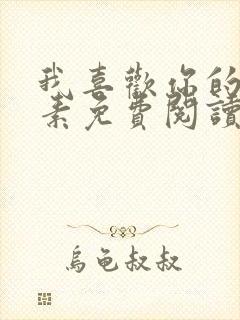 我喜歡你的
素免費閱讀
烏龜叔叔